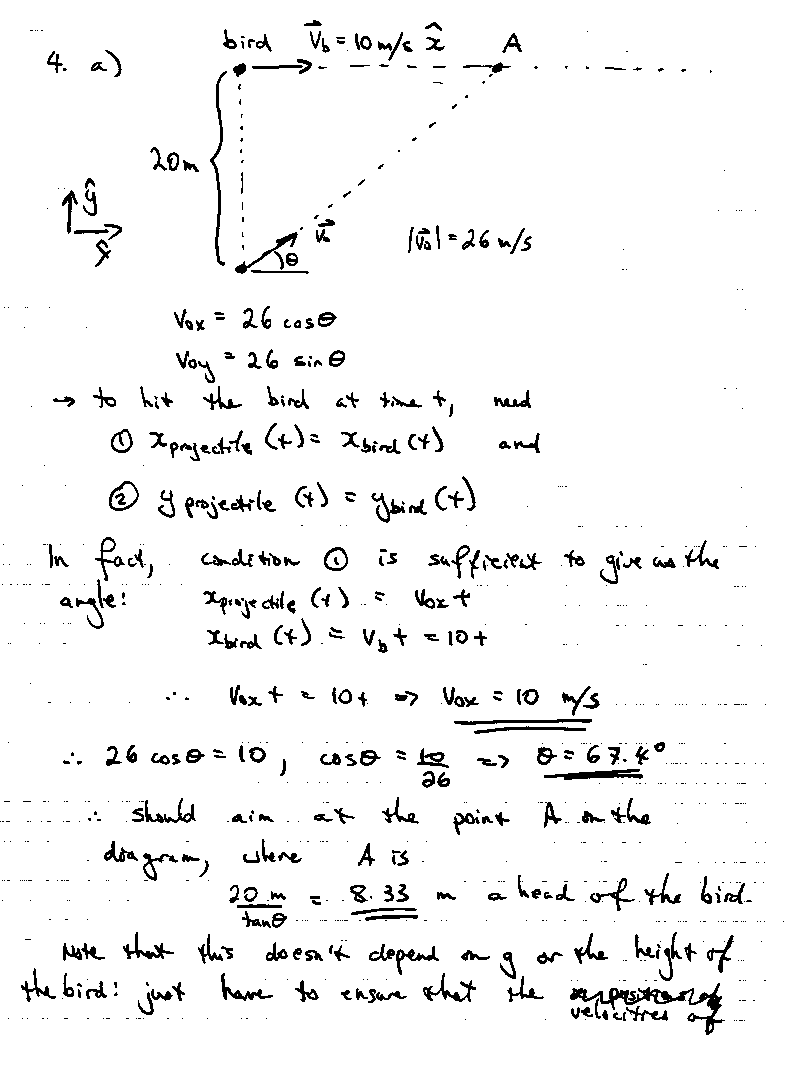 4. a)
bird v⃗b = 10 m/s x̂ A
20m
ŷ
x̂
v⃗o
θ
|v⃗o| = 26 m/s
Vox = 26 cosθ
Voy = 26 sin θ
→ to hit the bird at time t, need
① xprojectile (t) = xbird (t) and
② yprojectile (t) = ybird (t)
In fact, condition ① is sufficient to give us the
angle! xprojectile (t) = Vox t
xbird (t) = Vb t = 10t
∴ Vox t = 10t => Vox = 10 m/s
∴ 26 cosθ = 10 , cosθ = 10/26 => θ = 67.4°
∴ should aim at the point A on the
diagram, where A is
20 m / tanθ = 8.33 m ahead of the bird.
Note that this doesn't depend on g or the height of
the bird! just have to ensure that the
velocities of